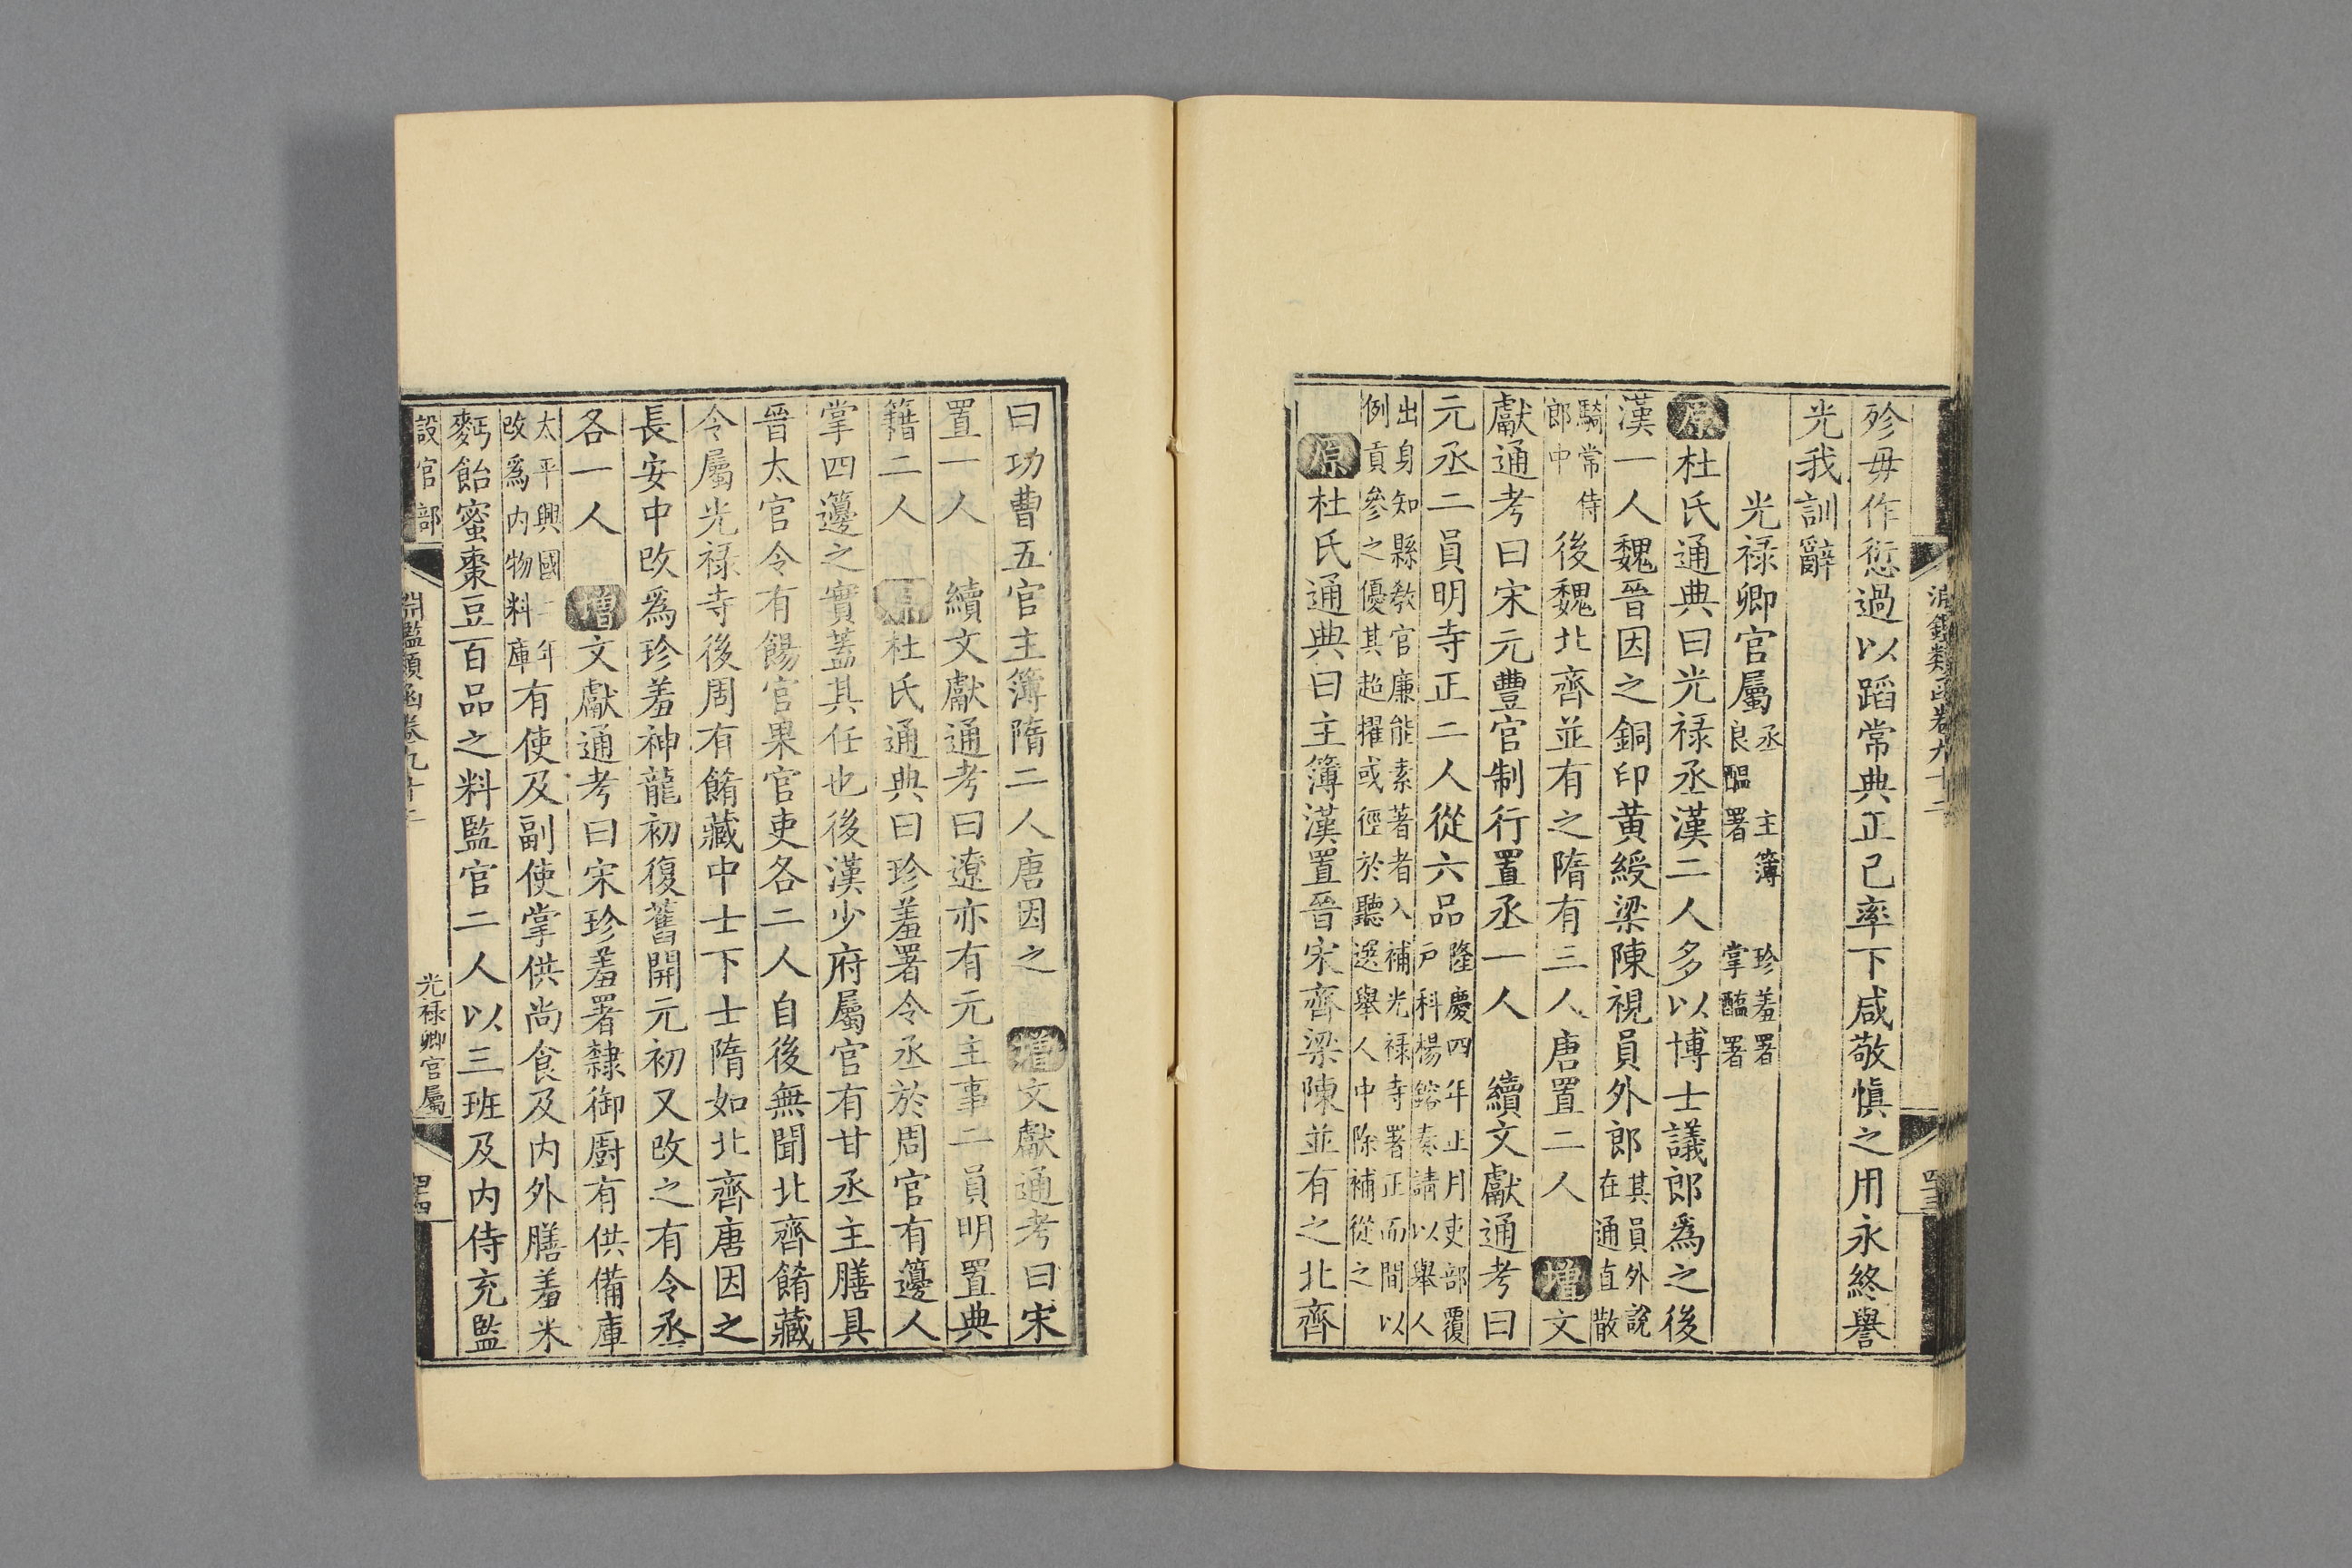 淵鑑類函卷九十二
殄毋作愆過以蹈常典正己率下咸敬愼之用永終譽
光我訓辭
光禄卿官屬丞 主簿 珍羞署
良醞署 掌醢署
原杜氏通典曰光禄丞漢二人多以博士議郎爲之後
漢一人魏晉因之銅印黄綬梁陳視員外郎其員外說
在通直散
騎常侍
郎中後魏北齊並有之隋有三人唐置二人 增文
獻通考曰宋元豐官制行置丞一人 續文獻通考曰
元丞二員明寺正二人從六品隆慶四年正月吏部覆
戶科楊鎔奏請以舉人
出身知縣敎官廉能素著者入補光禄寺署正而間以
例貢參之優其超擢或徑於聽選舉人中除補從之
原杜氏通典曰主簿漢置晉宋齊梁陳並有之北齊
曰功曹五官主簿隋二人唐因之 增文獻通考曰宋
置一人 續文獻通考曰遼亦有元主事二員明置典
籍二人 原杜氏通典曰珍羞署令丞於周官有籩人
掌四籩之實蓋其任也後漢少府屬官有甘丞主膳具
晉太官令有餳官果官吏各二人自後無聞北齊餚藏
令屬光禄寺後周有餚藏中士下士隋如北齊唐因之
長安中改爲珍羞神龍初復舊開元初又改之有令丞
各一人 增文獻通考曰宋珍羞署隸御廚有供備庫
太平興國二年
改爲内物料庫有使及副使掌供尚食及内外膳羞米
麪飴蜜棗豆百品之料監官二人以三班及内侍充監
設官部 淵鑑類函卷九十二 光禄卿官屬 四